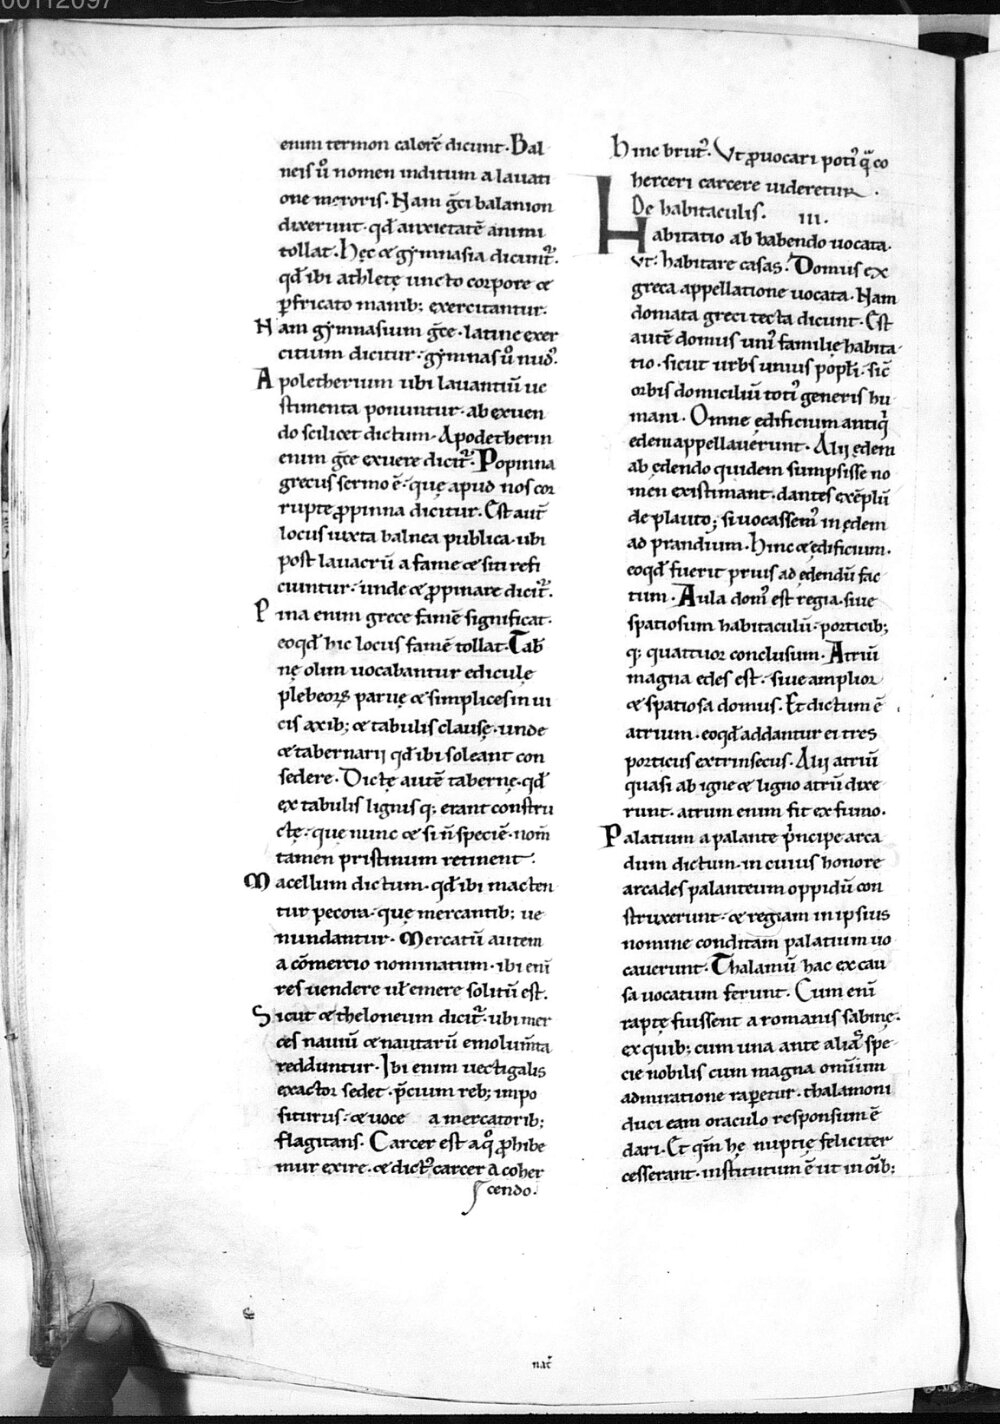 00112097
enim termon calorē dicunt. Bal
neis ũ nomen inditum a lauati
one meroris. Nam gͣci balanion
dixerunt. qđ anxietatē animi
tollat. Hęc & gymnasia dicunt᷑.
qđ ibi athletę uncto corpore &
ꝑfricato manib; exercitantur.
Nam gymnasium gͣce. latine exer
citium dicitur. gymnas ũ nud᷒.
Apoletherium ubi lauantiū ue
stimenta ponuntur. ab exuen
do scilicet dictum. Apodetherin
enim gͣce exuere dicit᷑. Popinna
grecus sermo ē. quę apud nos cor
rupte ꝓpinna dicitur. Est aut̄
locus iuxta balnea publica. ubi
post lauacrū a fame & siti refi
ciuntur. unde & ꝓpinare dicit᷑.
Pina enim grece famē significat.
eoqđ hic locus famē tollat. Tab̄
nę olim uocabantur edicule
plebeoꝝ paruę & simplices in ui
cis axib; & tabulis clausę. unde
& tabernarij qđ ibi soleant con
sedere. Dictę autē tabernę. qđ
ex tabulis lignisq; erant constru
ctę. quę nunc & si ñ speciē. nom̄
tamen pristinum retinent.
Macellum dictum. qđ ibi macten
tur pecora. quę mercantib; ue
nundantur. Mercatū autem
a cōmercio nominatum. ibi enī
res uendere ul̄ emere solitū est.
Sicut & theloneum dicit᷑. ubi mer
ces nauiū & nautarū emolum̄ta
redduntur. Ibi enim uectigalis
exactor sedet. p̄cium reb; impo
siturus. & uoce a mercatorib;
flagitans. Carcer est a qͦ ꝓhibe
mur exire. & dict᷒ carcer a coher
cendo.
hinc brut᷒. Vt ꝓuocari poti᷒ qͣ̄ co
herceri carcere uideretur.
De habitaculis. III.
Habitatio ab habendo uocata.
vt. habitare casas. Domus ex
greca appellatione uocata. Nam
domata greci tecta dicunt. Est
autē domus uni᷒ familię habita
tio. sicut urbs unius popl̄i. sic̄
orbis domiciliū toti᷒ generis hu
mani. Omne ędificium antiqͥ
edem appellauerunt. Alij ędem
ab ędendo quidem sumpsisse no
men existimant. dantes exēplū
de plauto; si uocassem᷒ in ędem
ad prandium. Hinc & ędificium.
eoqđ fuerit prius ad ędendū fac
tum. Aula dom᷒ est regia. siue
spatiosum habitaculū. porticib;
q; quattuor conclusum. Atriū
magna edes est. siue amplior
& spatiosa domus. Et dictum ē
atrium. eoqđ addantur ei tres
porticus extrinsecus. Alij atriū
quasi ab igne & ligno atrū dixe
runt. atrum enim fit ex fumo.
Palatium a palante pͥncipe arca
dum dictum. in cuius honore
arcades palanteum oppidū con
struxerunt. & regiam in ipsius
nomine conditam palatium uo
cauerunt. Thalamū hac ex cau
sa uocatum ferunt. Cum enī
raptę fuissent a romanis sabinę.
ex quib; cum una ante aliaꝝ spe
cie nobilis cum magna omiū inn
admiratione raꝑetur. thalamoni
duci eam oraculo responsum ē
dari. Et qm̄ hę nuptię feliciter
cesserant. institutum ē ut in oīb;
nat᷑